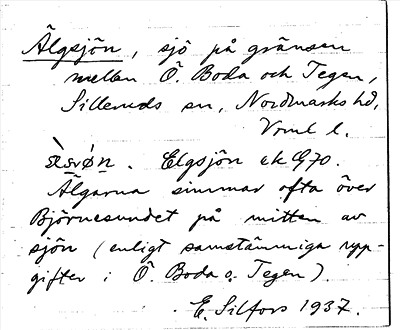 Älgsjön, sjö på gränsen
mellan Ö. Boda och Tegen,
Silleruds sn, Nordmarks hd,
Vrml l.
Elgsjön ek G70.
Älgarna simmar ofta över
Björnesundet på mitten av
sjön (enligt samstämmiga upp-
gifter i Ö. Boda o. Tegen).
E. Silfors 1937.